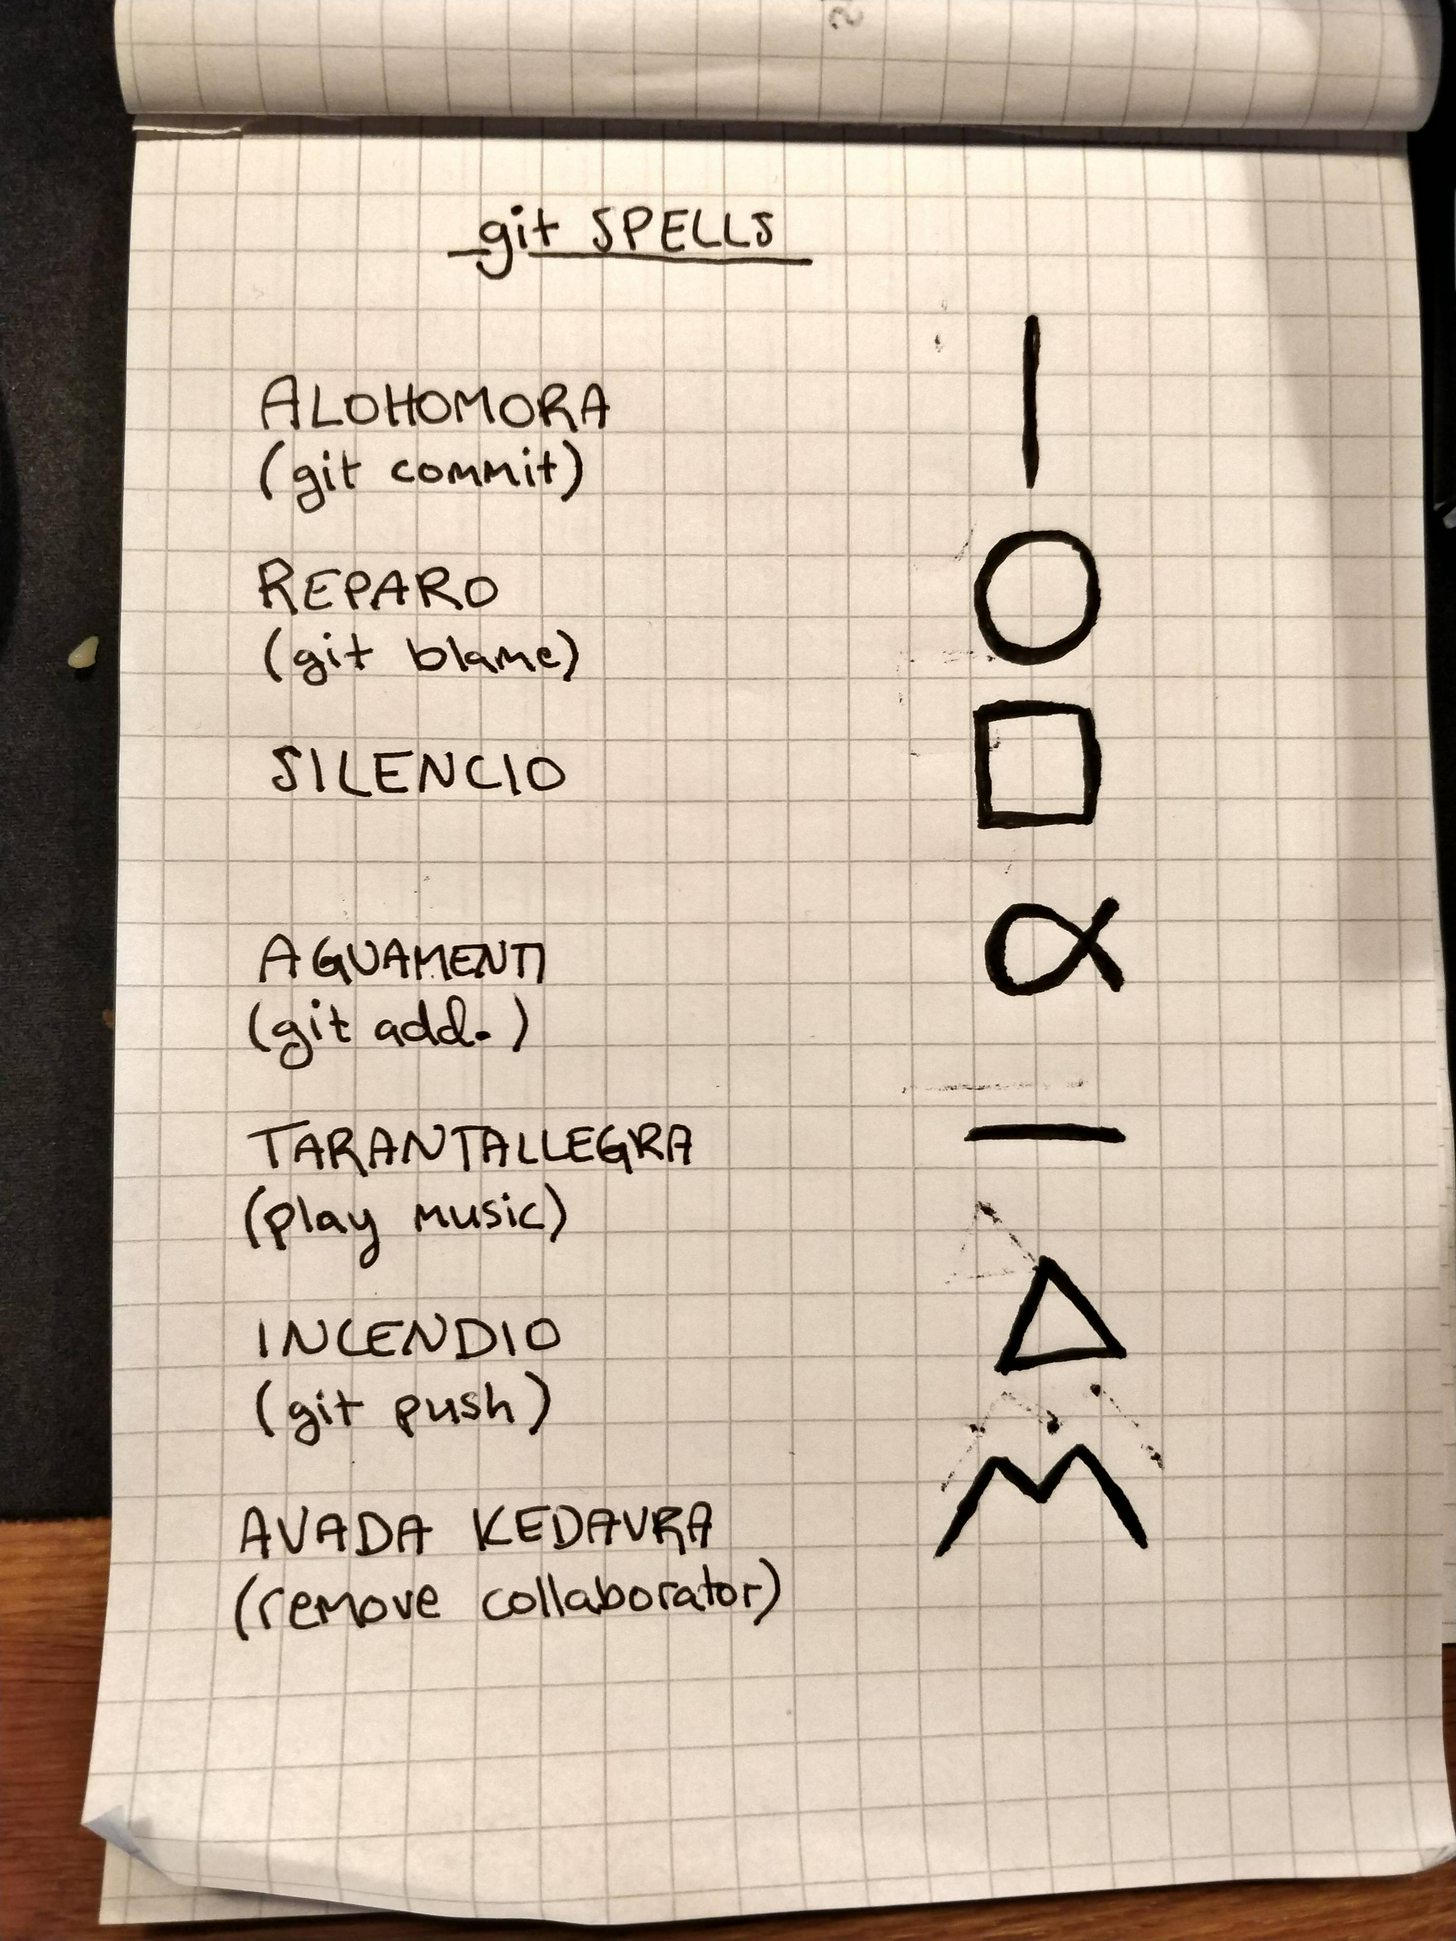 git SPELLS
ALOHOMORA
(git commit)
REPARO
(git blame)
SILENCIO
AGUAMENTI
(git add.)
TARANTALLEGRA
(play music)
INCENDIO
(git push)
AVADA KEDAVRA
(remove collaborator)